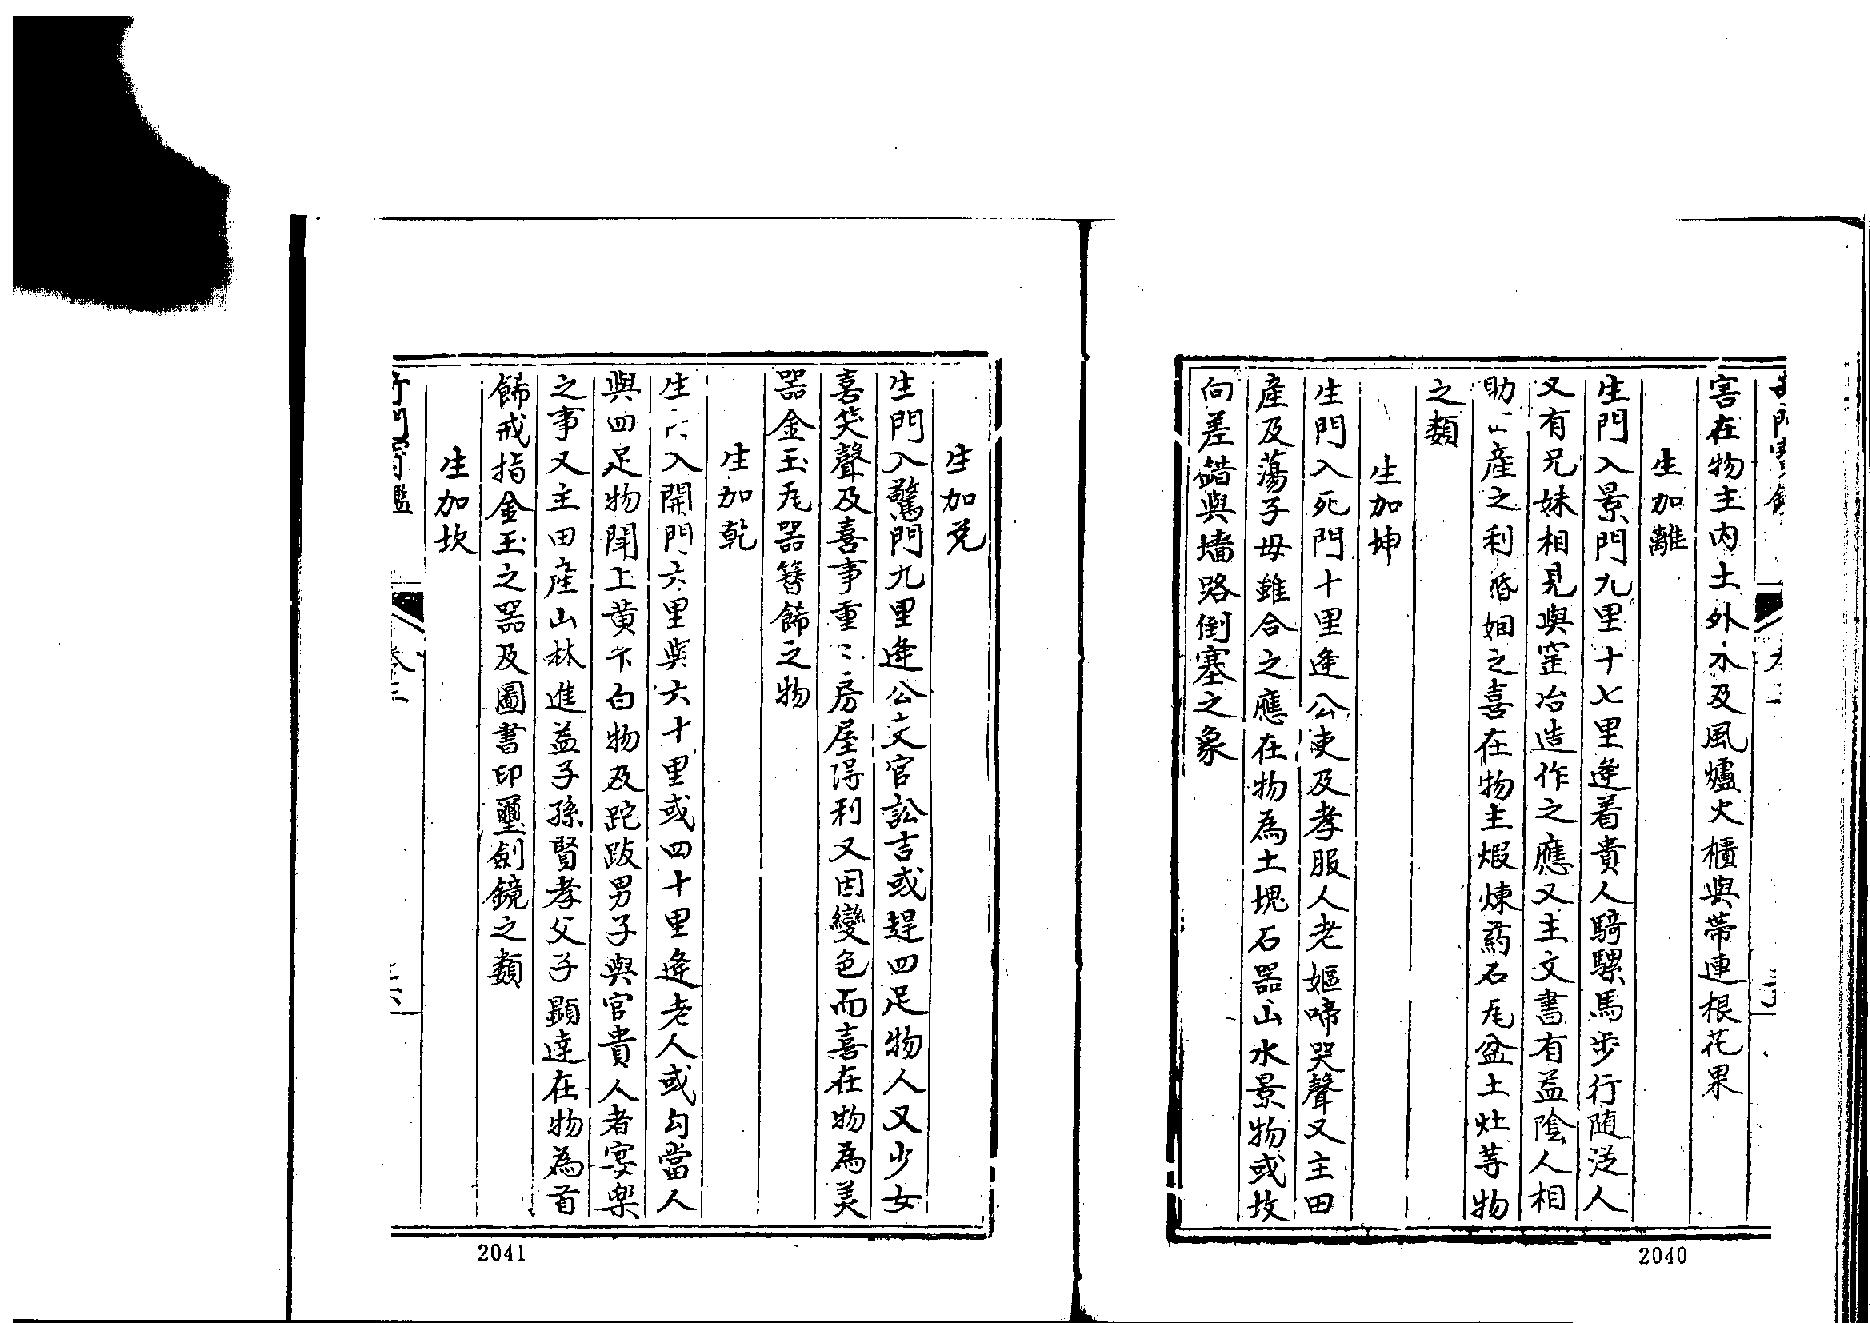 害在物主內土外水及風爐火櫃與蒂連根花果
生加離
生門入景門九里十七里逢着貴人騎騾馬步行随泛人
又有兄妹相見與窑冶造作之應又主文書有益陰人相
助山產之利婚姻之喜在物主煆煉药石瓦盆土灶等物
之類
生加坤
生門入死門十里逢公吏及孝服人老嫗啼哭聲又主田
產及蕩子母雖合之應在物為土塊石器山水景物或枝
向差錯與墻路倒塞之象
2040
生加兌
生門入驚門九里逢公文官訟吉或趕四足物人又少女
喜笑聲及喜事重〻房屋得利又因變色而喜在物為美
器金玉瓦器簪飾之物
生加乾
生入開門六里與六十里或四十里逢老人或勾當人
與四足物闻上黄下白物及跎跛男子與官貴人者宴楽
之事又主田產山林進益子孫賢孝父子顕達在物為首
飾戒指金玉之器及圖書印璽劍鏡之類
生加坎
卷三
2041